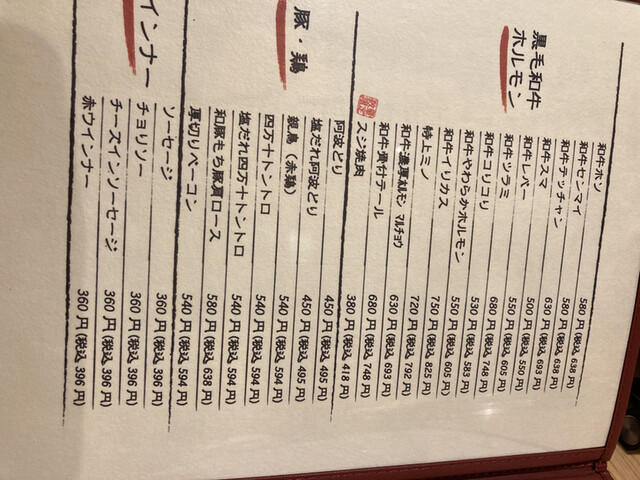 黒毛和牛
ホルモン
和牛ホソ 580円(税込 638円)
和牛センマイ 580円(税込 638円)
和牛テッチャン 630円(税込 693円)
和牛スマ 500円(税込 550円)
和牛レバー 550円(税込 605円)
和牛ツラミ 680円(税込 748円)
和牛コリコリ 530円(税込 583円)
和牛やわらかホルモン 550円(税込 605円)
和牛イリカス 750円(税込 825円)
特上ミノ 720円(税込 792円)
和牛濃厚ホルモン マルチョウ 630円(税込 693円)
和牛骨付テール 680円(税込 748円)
スジ焼肉 380円(税込 418円)
豚・鶏
阿波どり 450円(税込 495円)
塩だれ阿波どり 450円(税込 495円)
親鳥（赤鶏） 540円(税込 594円)
四万十トントロ 540円(税込 594円)
塩だれ四万十トントロ 540円(税込 594円)
和豚もち豚肩ロース 580円(税込 638円)
厚切りベーコン 540円(税込 594円)
インナー
ソーセージ 360円(税込 396円)
チョリソー 360円(税込 396円)
チーズインソーセージ 360円(税込 396円)
赤ウインナー 360円(税込 396円)